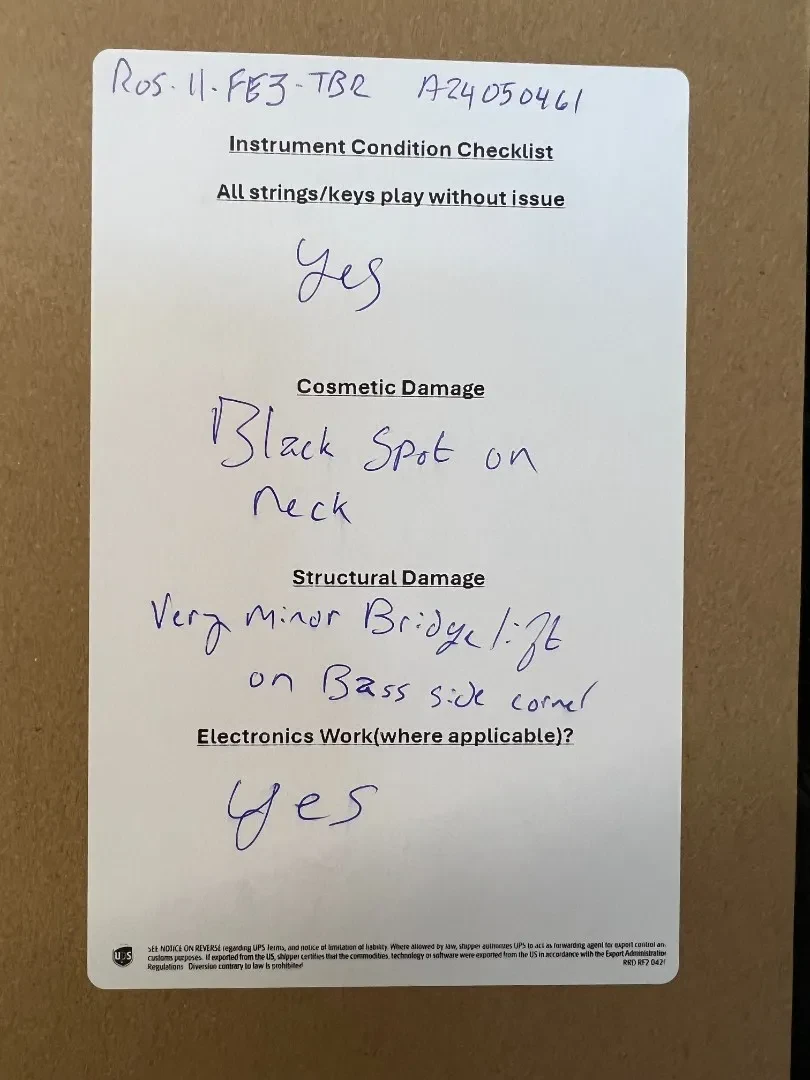 Ros-11-FE3-TBR A24050461
Instrument Condition Checklist
All strings/keys play without issue
Yes
Cosmetic Damage
Black Spot on
neck
Structural Damage
Very Minor Bridge lift
on Bass side corner
Electronics Work(where applicable)?
yes
UPS
SEE NOTICE ON REVERSE regarding UPS Terms, and notice of limitation of liability. Where allowed by law, shipper authorizes UPS to act as forwarding agent for export control an
customs purposes. If exported from the US, shipper certifies that the commodities, technology or software were exported from the US in accordance with the Export Administratio
Regulations. Diversion contrary to law is prohibited
RRD RF2 042